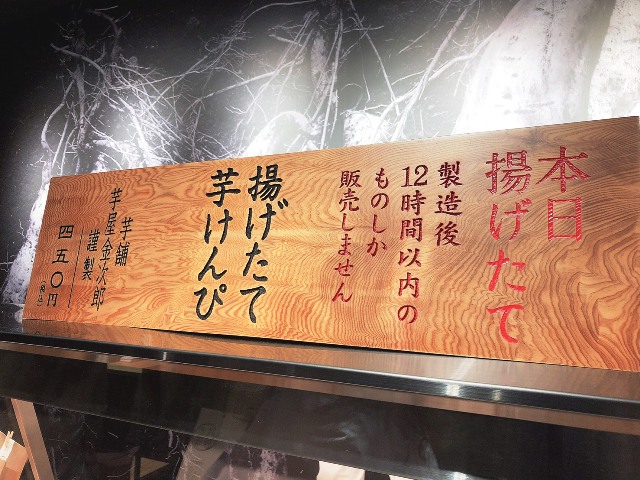 本日
揚げたて
製造後
12時間以内の
ものしか
販売しません
揚げたて
芋けんぴ
芋舗
芋屋金次郎
謹製
四五〇円
(税込)